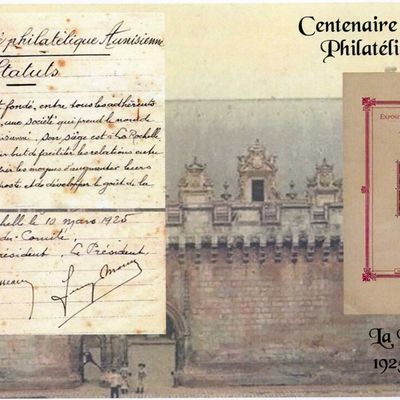 é philatélique Aunisienne
Statuts
t fondé, entre tous les adhérents
, une société qui prend le nom de
isienne. Son siège est à La Rochelle
r but de faciliter les relations entre
les moyens d'augmenter leurs
et de développer le goût de la
chelle le 10 mars 1925
du Comité
résident, Le Président
Centenaire
Philatéli
Expos
La
1925